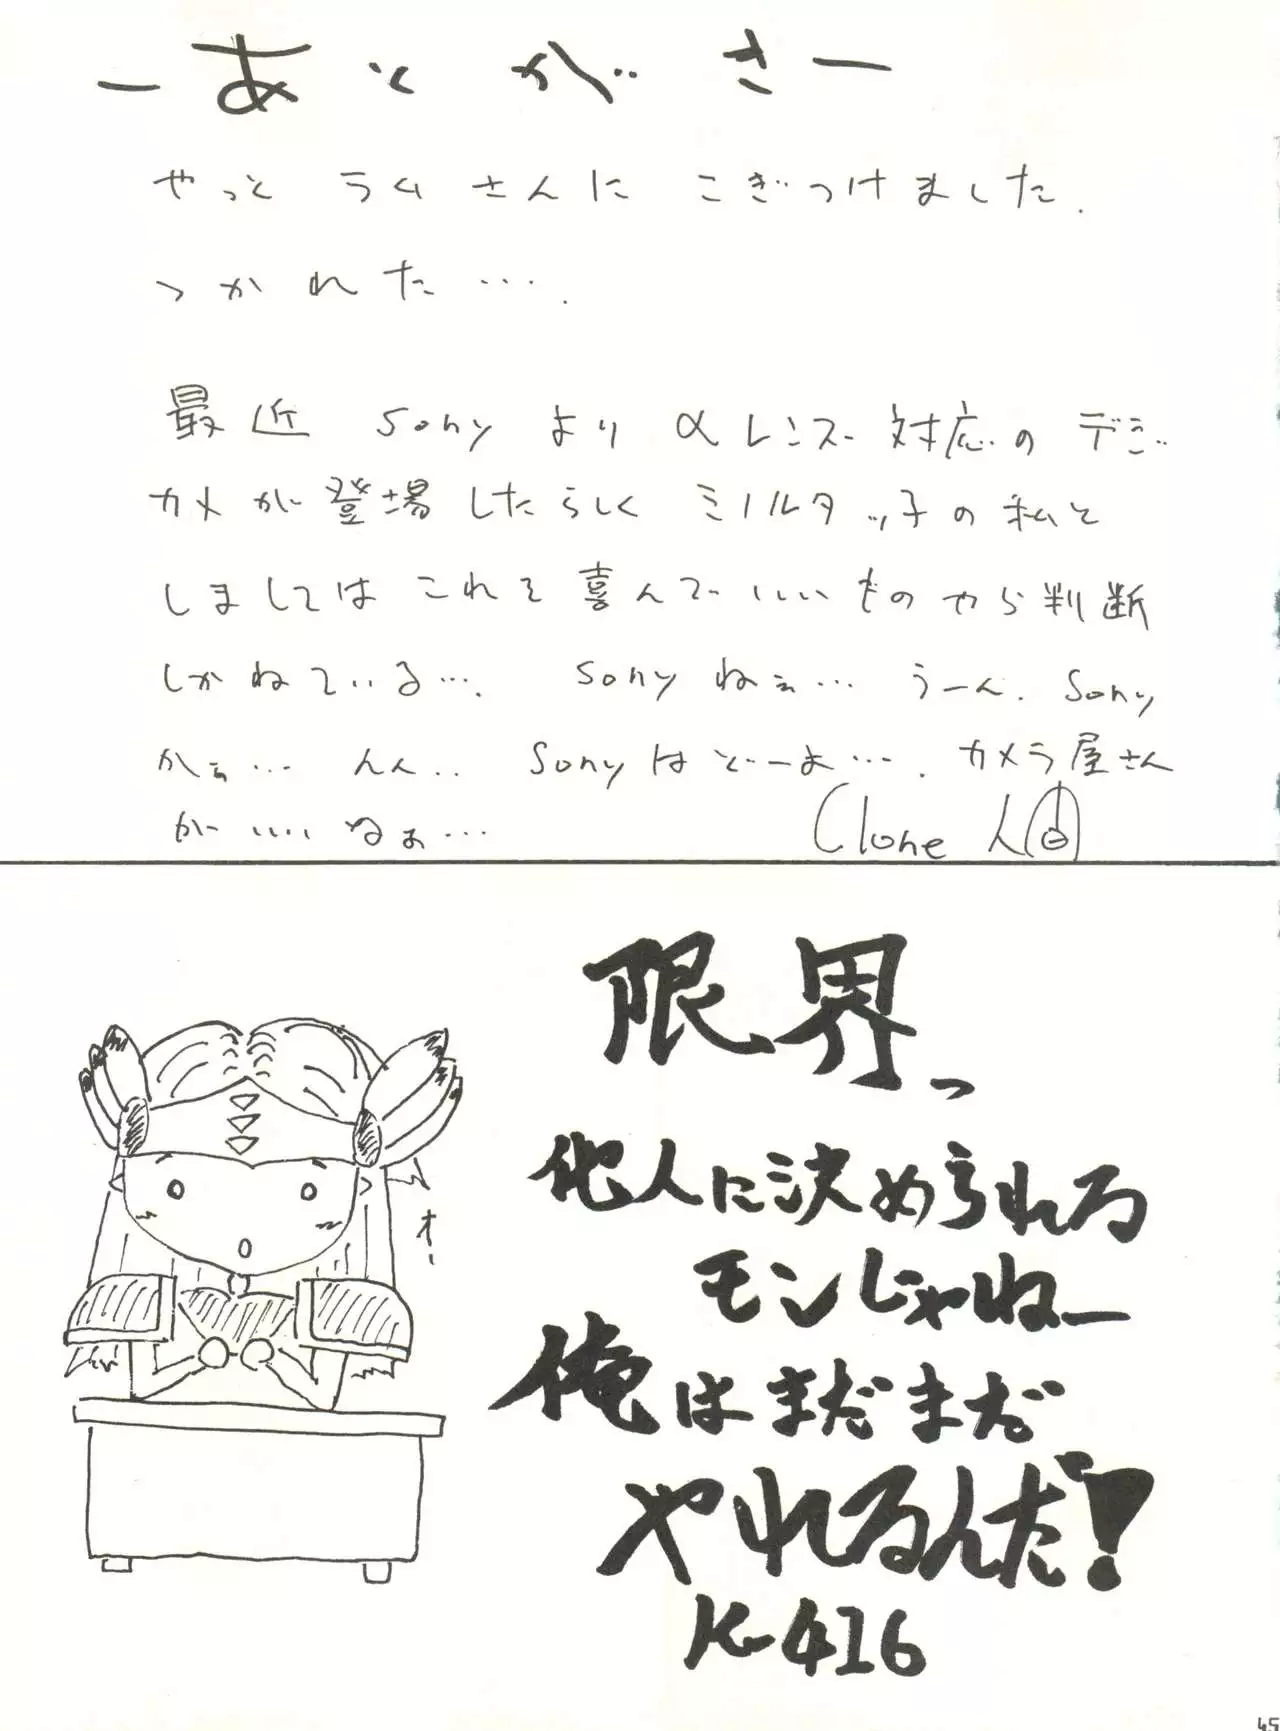 ーあとがきー
やっと ラムさんに こぎつけました.
つかれた….
最近 Sony より αレンズ 対応の デジ
カメが登場したらしく ミノルタッ子の私と
しましては これを喜んでいいものやら判断
しかねている…. Sony ねぇ… うーん. Sony
かぁ… んん.. Sony はどーよ…. カメラ屋さん
が いい ねぇ…
Clone 人間
限界っ
他人に決められる
モンじゃねー
俺はまだまだ
やれるんだ!
K-416
オー
45